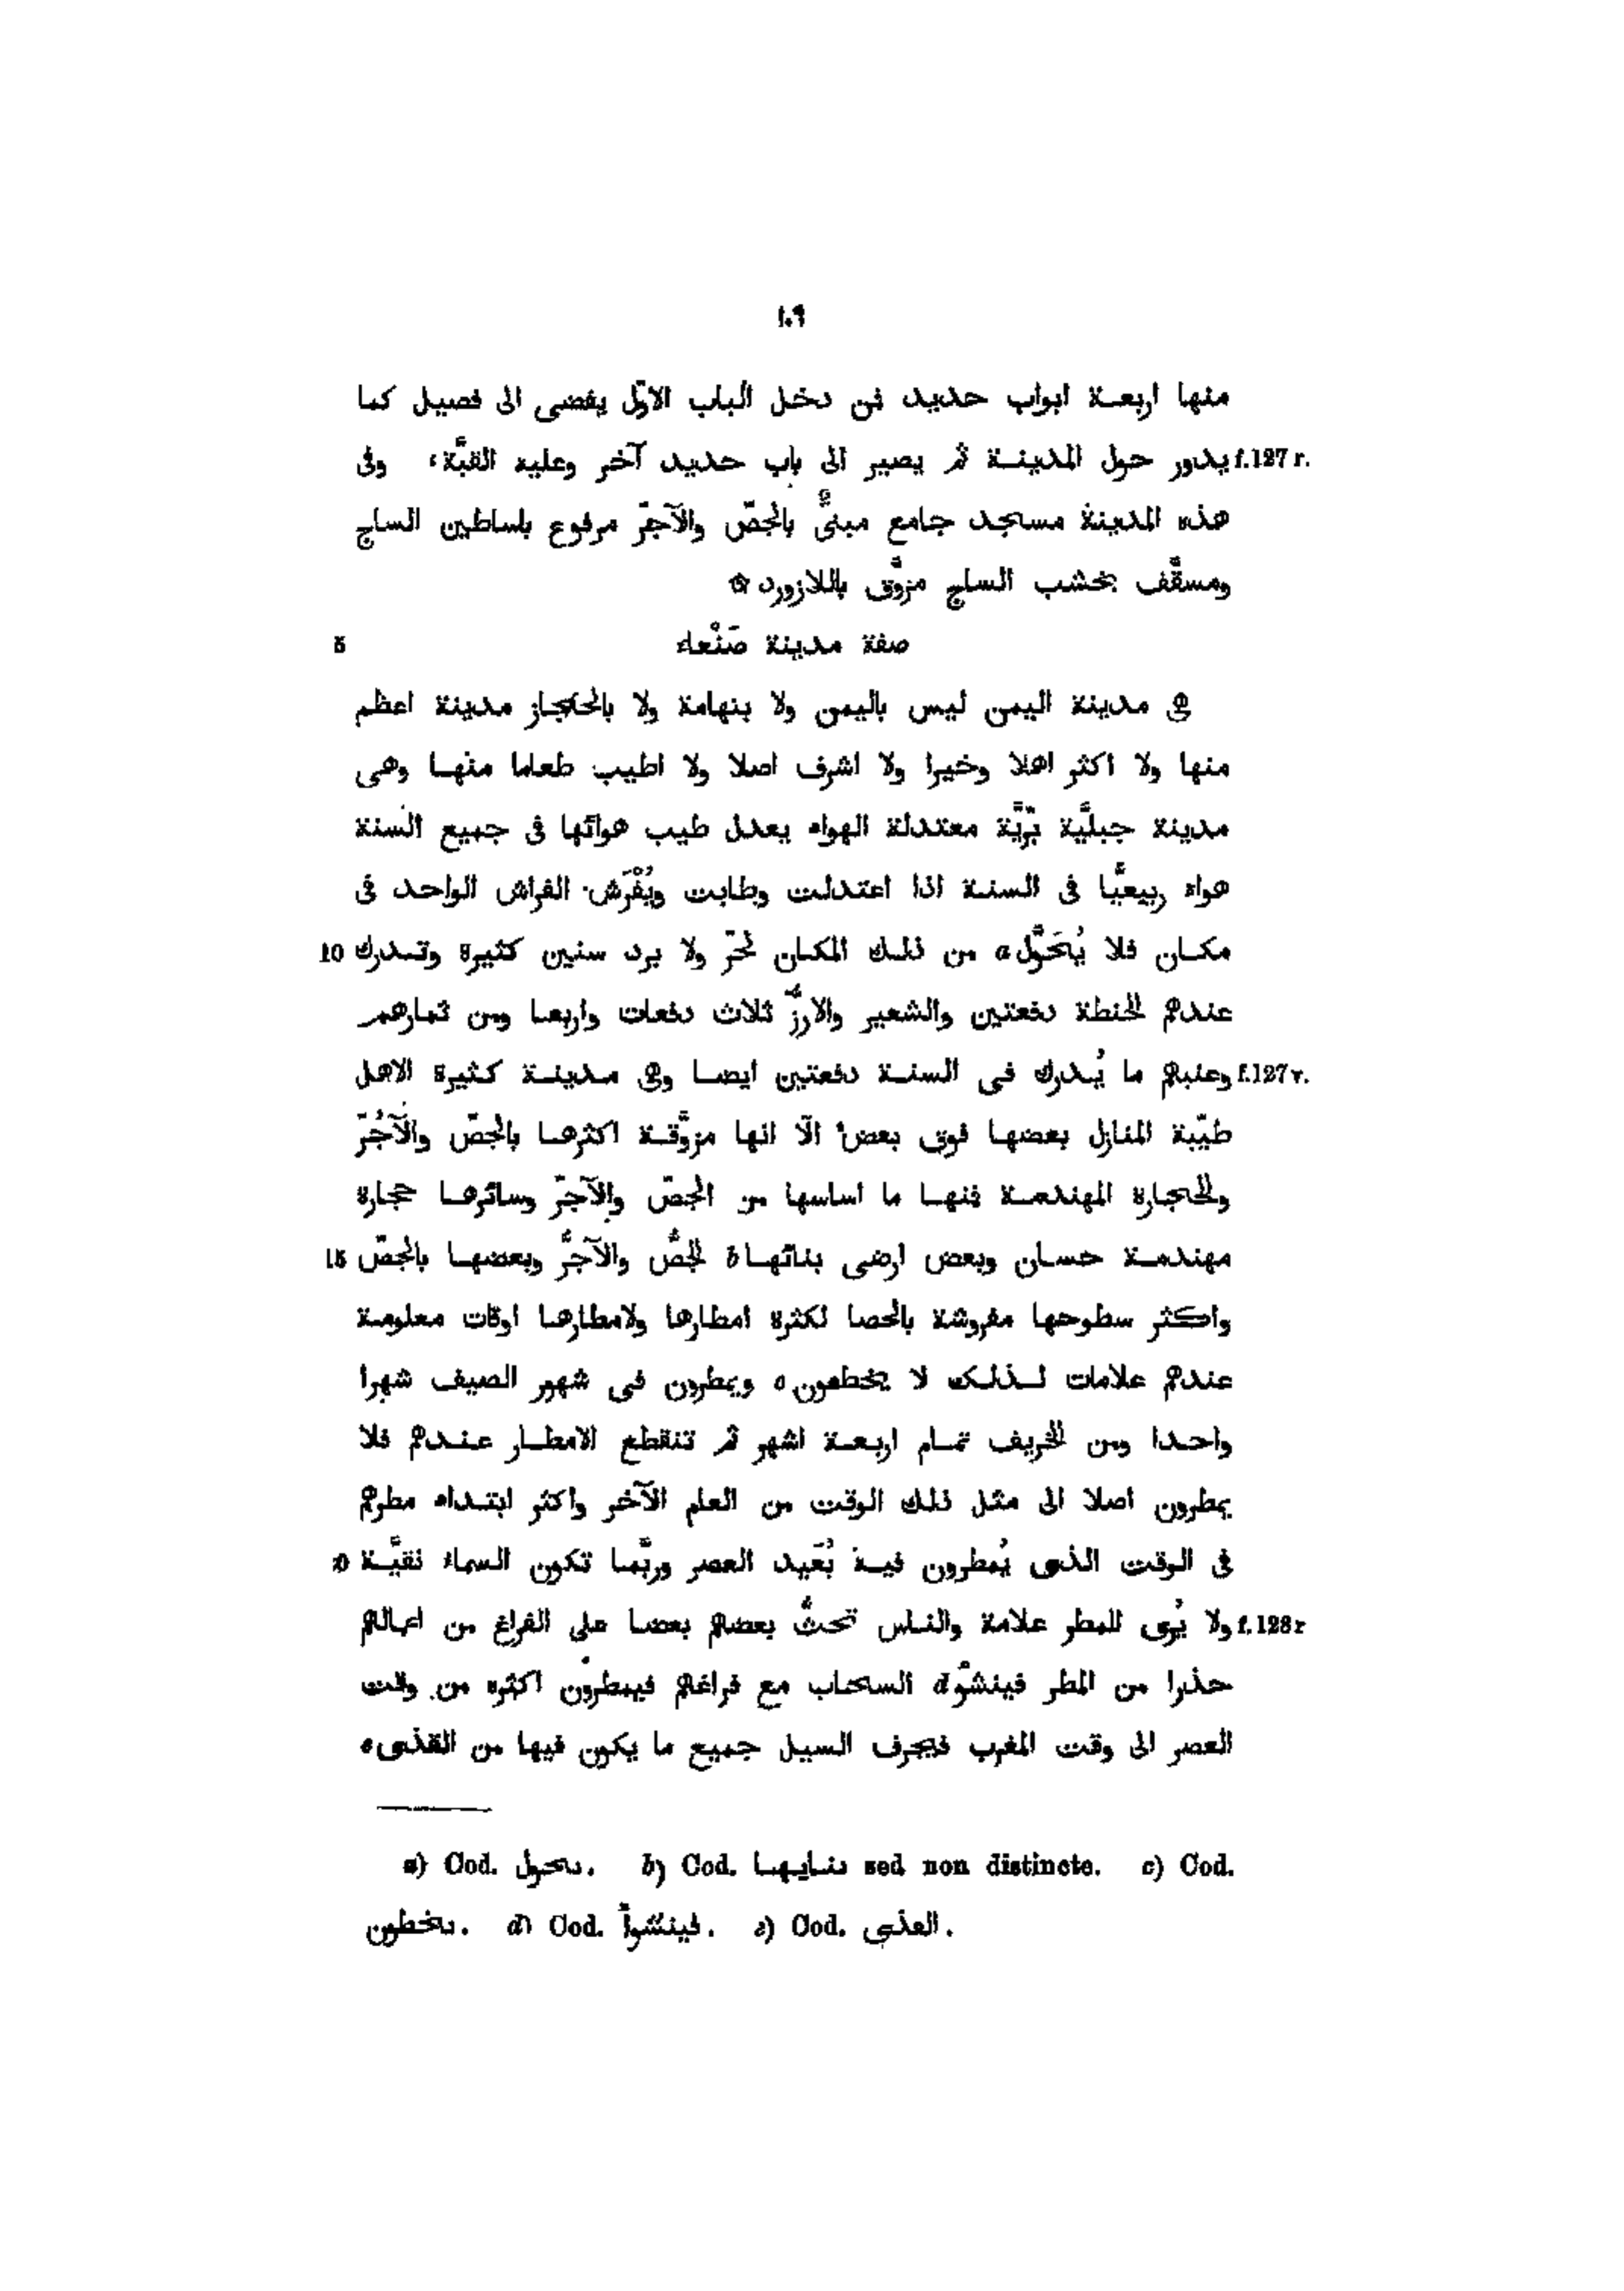 ١٠٩
منها اربعة ابواب حديد فمن دخل الباب الاوّل يفضى الى فصيل كما
f.127 r. يدور حول المدينة ثم يصير الى باب حديد آخر وعليه القبَّة، وفى
هذه المدينة مسجد جامع مبنىٌّ بالجصّ والآجرّ مرفوع باساطين الساج
ومسقَّف بخشب الساج مزوَّق باللازورد ۞
صفة مدينة صَنْعاء 5
هى مدينة اليمن ليس باليمن ولا بتهامة ولا بالحجاز مدينة اعظم
منها ولا اكثر اهلا وخيرا ولا اشرف اصلا ولا اطيب طعاما منها وهى
مدينة جبليَّة بَرّيَّة معتدلة الهواء يعدل طيب هوائها فى جميع السنة
هواء ربيعيًّا فى السنة اذا اعتدلت وطابت ويُفْرَش الفراش الواحد فى
مكان فلا يُحَوَّل a من ذلك المكان لحرّ ولا برد سنين كثيرة وتدرك 10
عندهم الحنطة دفعتين والشعير والارزّ ثلاث دفعات واربعا ومن ثمارهم
f.127 v. وعنبهم ما يُدرك فى السنة دفعتين ايضا وهى مدينة كثيرة الاهل
طيّبة المنازل بعضها فوق بعض الّا انها مزوَّقة اكثرها بالجصّ والآجُرّ
والحجارة المهندمة فمنها ما اساسها من الجصّ والآجرّ وسائرها حجارة
مهندمة حسان وبعض ارضى بنائها b الجصّ والآجرّ وبعضها بالجصّ 15
واكثر سطوحها مفروشة بالحصا لكثرة امطارها ولامطارها اوقات معلومة
عندهم علامات لذلك لا يخطئون c ويمطرون فى شهور الصيف شهرا
واحدا ومن الخريف تمام اربعة اشهر ثم تنقطع الامطار عندهم فلا
يمطرون اصلا الى مثل ذلك الوقت من العام الآخر واكثر ابتداء مطرهم
فى الوقت الذى يُمطرون فيه بُعَيد العصر وربَّما تكون السماء نقيَّة 20
f.128 r ولا يُرى للمطر علامة والناس تحثّ بعضهم بعضا على الفراغ من اعمالهم
حذرا من المطر فينشؤ d السحاب مع فراغهم فيمطرون اكثره من وقت
العصر الى وقت المغرب فيجرف السيل جميع ما يكون فيها من القذى e
a) Cod. ىحول. b) Cod. ىنايها sed non distincte. c) Cod.
ىخطون. d) Cod. فينشواً. e) Cod. العذى.